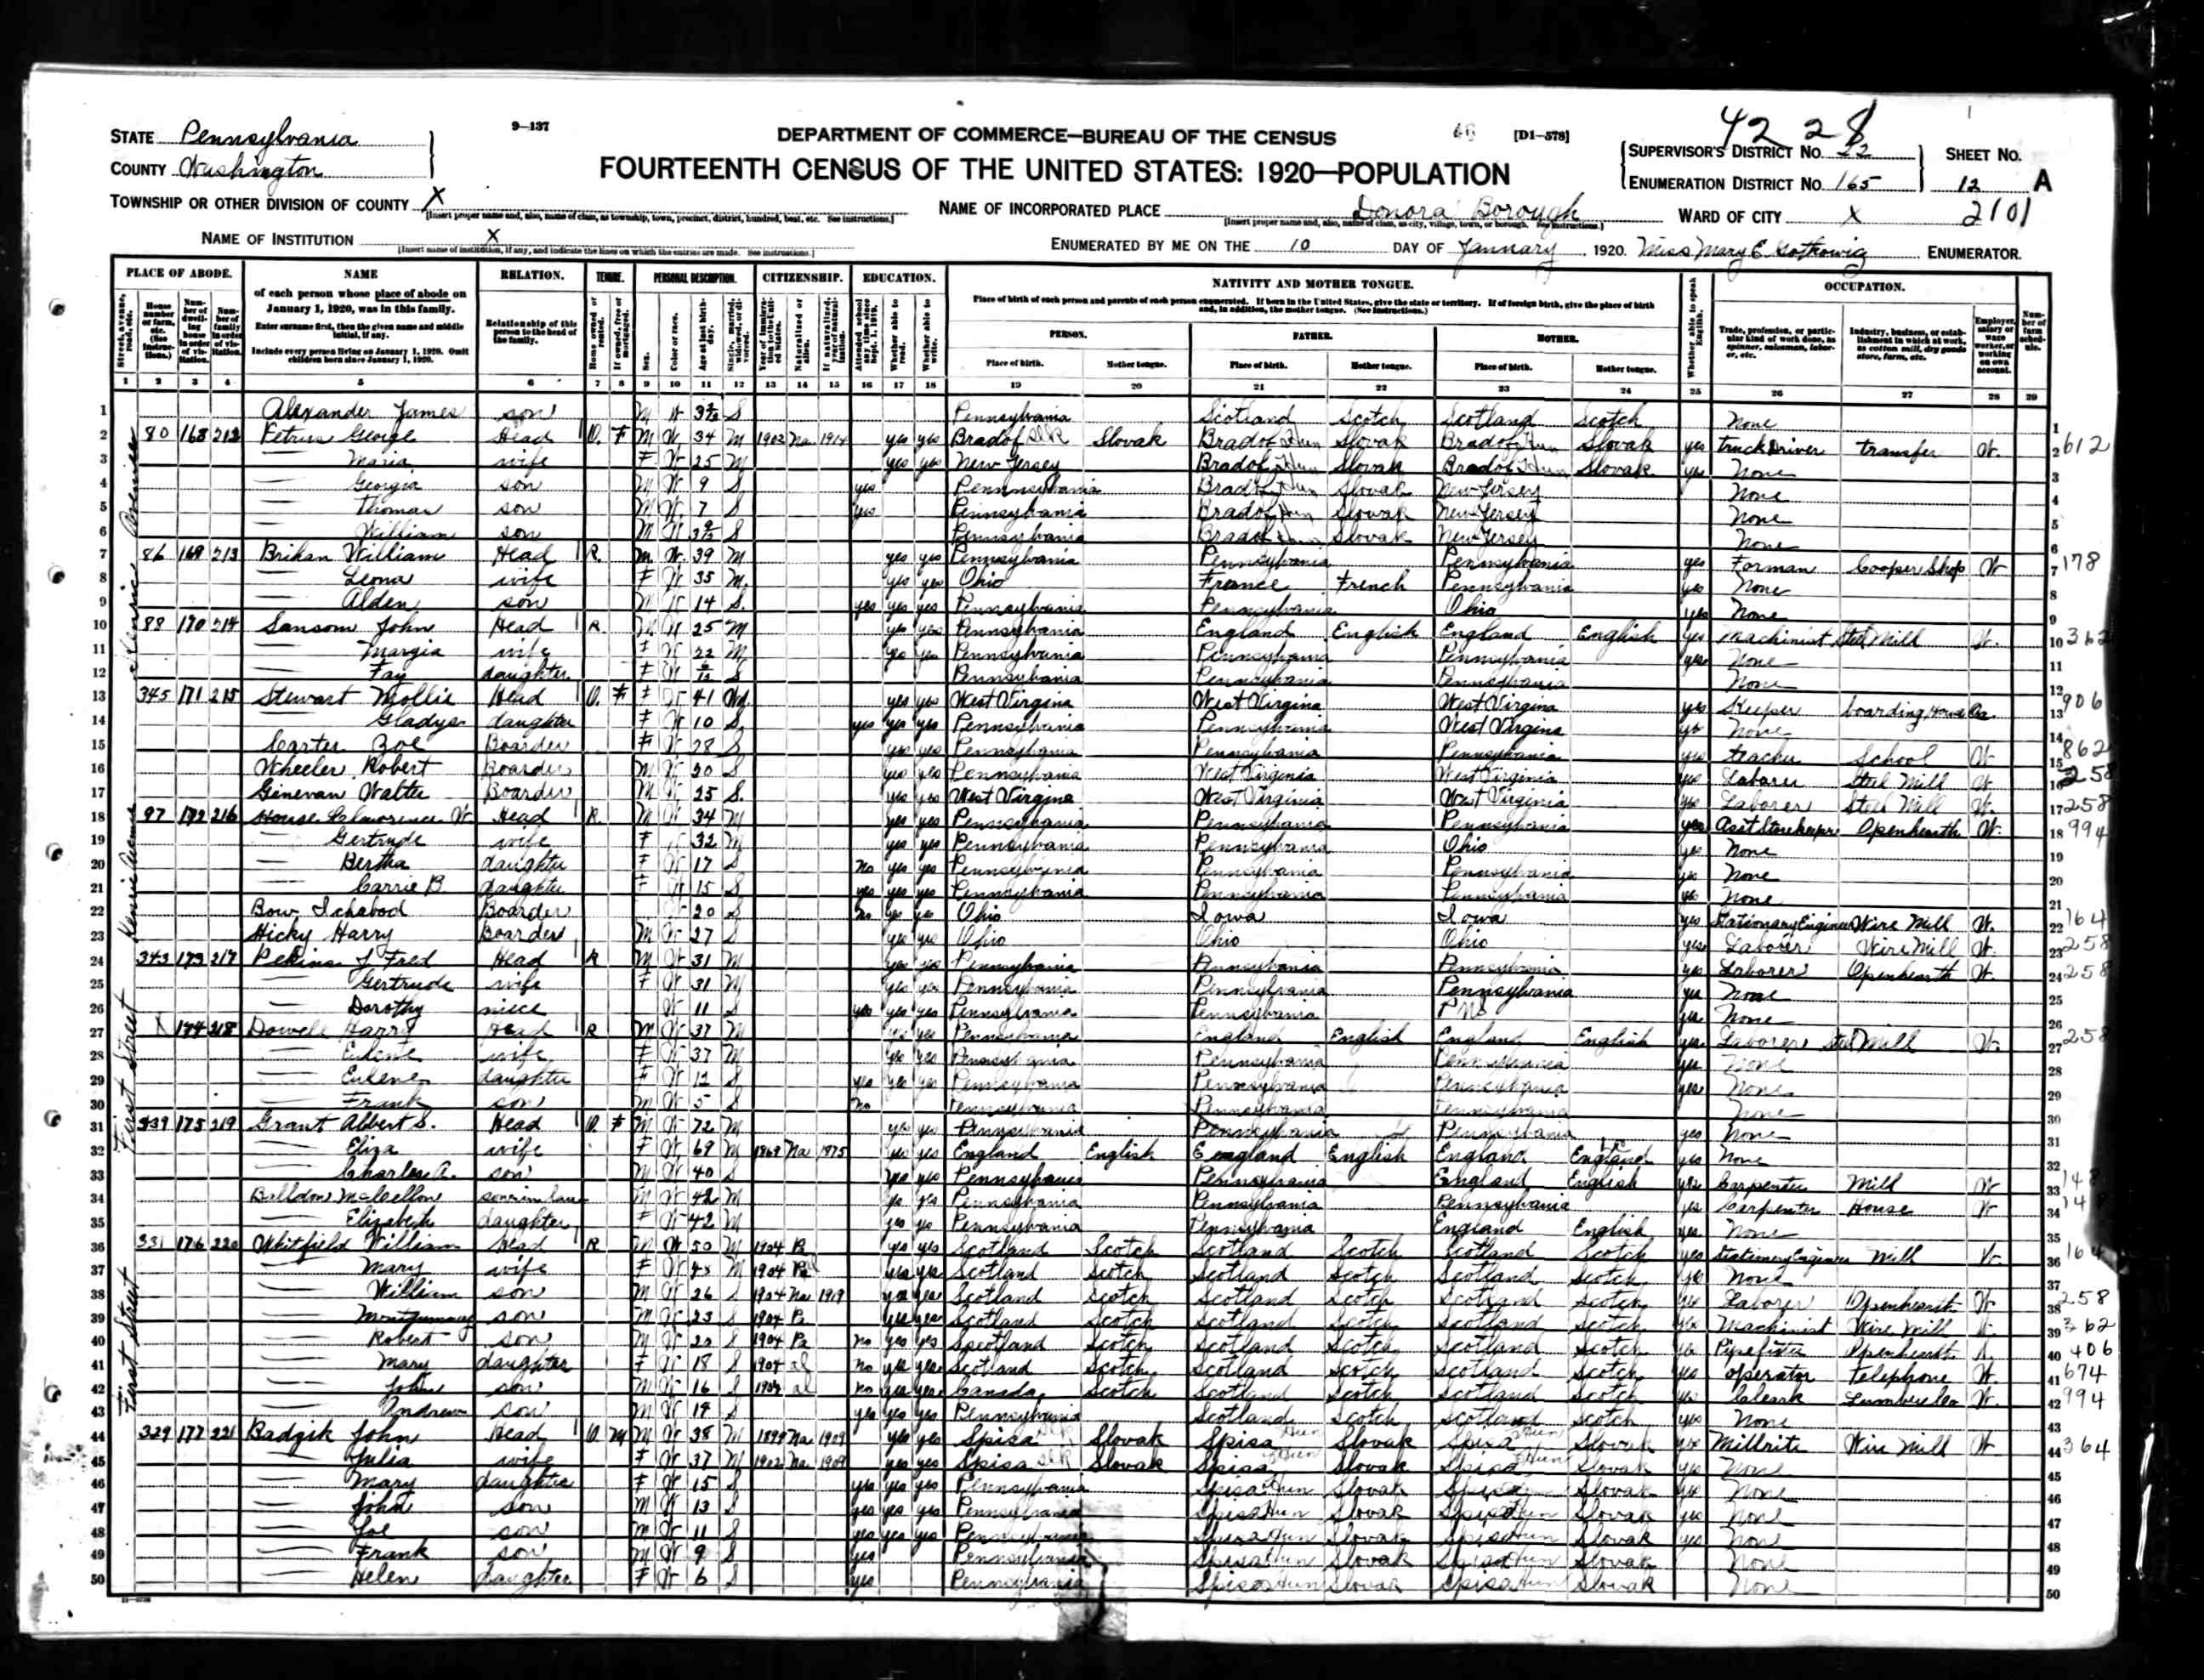 9—137
DEPARTMENT OF COMMERCE—BUREAU OF THE CENSUS
[D1-578]
42 28
STATE Pennsylvania
COUNTY Washington
FOURTEENTH CENSUS OF THE UNITED STATES: 1920—POPULATION
SUPERVISOR'S DISTRICT No. 22
ENUMERATION DISTRICT No. 165
SHEET No.
12 A
TOWNSHIP OR OTHER DIVISION OF COUNTY X
NAME OF INCORPORATED PLACE Donora Borough
WARD OF CITY X
2101
NAME OF INSTITUTION X
ENUMERATED BY ME ON THE 10 DAY OF January, 1920. Miss Mary E. ENUMERATOR.
PLACE OF ABODE. NAME RELATION. TENURE. PERSONAL DESCRIPTION. CITIZENSHIP. EDUCATION. NATIVITY AND MOTHER TONGUE. OCCUPATION.
of each person whose place of abode on January 1, 1920, was in this family.
Enter surname first, then the given name and middle initial, if any.
Include every person living on January 1, 1920. Omit children born since January 1, 1920.
Relationship of this person to the head of the family.
Place of birth of each person and parents of each person enumerated. If born in the United States, give the state or territory. If of foreign birth, give the place of birth and, in addition, the mother tongue. (See instructions.)
PERSON. FATHER. MOTHER.
Place of birth. Mother tongue. Place of birth. Mother tongue. Place of birth. Mother tongue.
1 2 3 4 5 6 7 8 9 10 11 12 13 14 15 16 17 18 19 20 21 22 23 24 25 26 27 28 29
1 Alexander James son M W S Pennsylvania Scotland Scotch Scotland Scotch None
2 80 168 212 Petrus George Head O F M W 34 M 1902 Na 1914 yes yes Slovak Slovak Slovak yes truck Driver transfer W 612
3 Maria wife F W 25 M yes yes New Jersey Slovak Slovak yes None
4 Georgia son M W 9 S yes Pennsylvania Slovak New Jersey None
5 Thomas son M W 7 S yes Pennsylvania Slovak New Jersey None
6 William son M W S Pennsylvania Slovak New Jersey None
7 86 169 213 Brihan William Head R M W 39 M yes yes Pennsylvania Pennsylvania Pennsylvania yes Forman Cooper Shop W 178
8 Leona wife F W 35 M yes yes Ohio France French Pennsylvania yes None
9 Alden son M W 14 S yes yes yes Pennsylvania Pennsylvania Ohio yes None
10 88 170 214 Sansom John Head R M W 25 M yes yes Pennsylvania England English England English yes Machinist Steel Mill W 362
11 Margia wife F W 22 M yes yes Pennsylvania Pennsylvania Pennsylvania yes None
12 Fay daughter F W S Pennsylvania Pennsylvania Pennsylvania None
13 345 171 215 Stewart Mollie Head O F F W 41 Wd yes yes West Virginia West Virginia West Virginia yes Keeper boarding House 906
14 Gladys daughter F W 10 S yes yes yes Pennsylvania Pennsylvania West Virginia yes None
15 Carter Zoe Boarder F W 28 S yes yes Pennsylvania Pennsylvania Pennsylvania yes teacher School W 862
16 Wheeler Robert Boarder M W 20 S yes yes Pennsylvania West Virginia West Virginia yes Laborer Steel Mill W 258
17 Ginevan Walter Boarder M W 25 S yes yes West Virginia West Virginia West Virginia yes Laborer Steel Mill W 258
18 97 172 216 House Clawrence W. Head R M W 34 M yes yes Pennsylvania Pennsylvania Pennsylvania yes Asst Storekeeper Openhearth W 994
19 Gertrude wife F W 32 M yes yes Pennsylvania Pennsylvania Ohio yes None
20 Bertha daughter F W 17 S No yes yes Pennsylvania Pennsylvania Pennsylvania yes None
21 Carrie B daughter F W 15 S yes yes yes Pennsylvania Pennsylvania Pennsylvania yes None
22 Bow Ichabod Boarder 20 S no yes yes Ohio Iowa Iowa yes Stationary Engineer Wire Mill W 164
23 Hicky Harry Boarder M W 27 S yes yes Ohio Ohio Ohio yes Laborer Wire Mill W 258
24 343 173 217 Pekins J Fred Head R M W 31 M yes yes Pennsylvania Pennsylvania Pennsylvania yes Laborer Openhearth W 258
25 Gertrude wife F W 31 M yes yes Pennsylvania Pennsylvania Pennsylvania yes None
26 Dorothy niece W 11 S yes yes yes Pennsylvania Pennsylvania yes None
27 X 174 218 Dowell Harry Head R M W 37 M yes yes Pennsylvania England English England English yes Laborer Steel Mill W 258
28 Eulene wife F W 37 M yes yes Pennsylvania Pennsylvania Pennsylvania yes None
29 Eulene daughter F W 12 S yes yes yes Pennsylvania Pennsylvania Pennsylvania yes None
30 Frank son M W 5 S no Pennsylvania Pennsylvania Pennsylvania None
31 339 175 219 Grant Albert S. Head O F M W 72 M yes yes Pennsylvania Pennsylvania Pennsylvania yes None
32 Eliza wife F W 69 M 1869 Na 1875 yes yes England English England English England yes None
33 Charles A. son M W 40 S yes yes Pennsylvania Pennsylvania England English yes Carpenter Mill W 148
34 McClellon son in law M W 42 M yes yes Pennsylvania Pennsylvania Pennsylvania yes Carpenter House W 14
35 Elizabeth daughter F W 42 M yes yes Pennsylvania Pennsylvania England English yes None
36 331 176 220 Whitfield William Head R M W 50 M 1904 Pa yes yes Scotland Scotch Scotland Scotch Scotland Scotch yes Stationery Engineer Mill W 164
37 Mary wife F W M 1904 yes yes Scotland Scotch Scotland Scotch Scotland Scotch yes None
38 William son M W 26 S 1904 Na 1919 yes yes Scotland Scotch Scotland Scotch Scotland Scotch yes Laborer Openhearth W 258
39 Montgummay son M W 23 S 1904 Pa yes yes Scotland Scotch Scotland Scotch Scotland Scotch yes Machinist Wire Mill W 362
40 Robert son M W 20 S 1904 Pa no yes yes Scotland Scotch Scotland Scotch Scotland Scotch yes Pipefitter Openhearth 406
41 Mary daughter F W 18 S 1904 al no yes yes Scotland Scotch Scotland Scotch Scotland Scotch yes operator telephone W 674
42 John son M W 16 S 1904 al no yes yes Canada Scotch Scotland Scotch Scotland Scotch yes Clerk Lumber Co W 994
43 Andrew son M W 14 S yes yes yes Pennsylvania Scotland Scotch Scotland Scotch yes None
44 329 177 221 Badzik John Head O M M W 38 M 1899 Na 1909 yes yes Spisa Slk Slovak Spisa Hun Slovak Spisa Hun Slovak yes Millrite Wire Mill W 364
45 Julia wife F W 37 M 1902 Na 1909 yes yes Spisa Slk Slovak Spisa Hun Slovak Spisa Hun Slovak yes None
46 Mary daughter F W 15 S yes yes yes Pennsylvania Spisa Hun Slovak Spisa Slovak yes None
47 John son M W 13 S yes yes yes Pennsylvania Spisa Hun Slovak Spisa Hun Slovak yes None
48 Joe son M W 11 S yes yes yes Pennsylvania Spisa Hun Slovak Spisa Hun Slovak yes None
49 Frank son M W 9 S yes Pennsylvania Spisa Hun Slovak Spisa Hun Slovak None
50 Helen daughter F W 6 S yes Pennsylvania Spisa Hun Slovak Spisa Hun Slovak None
First Street
First Street